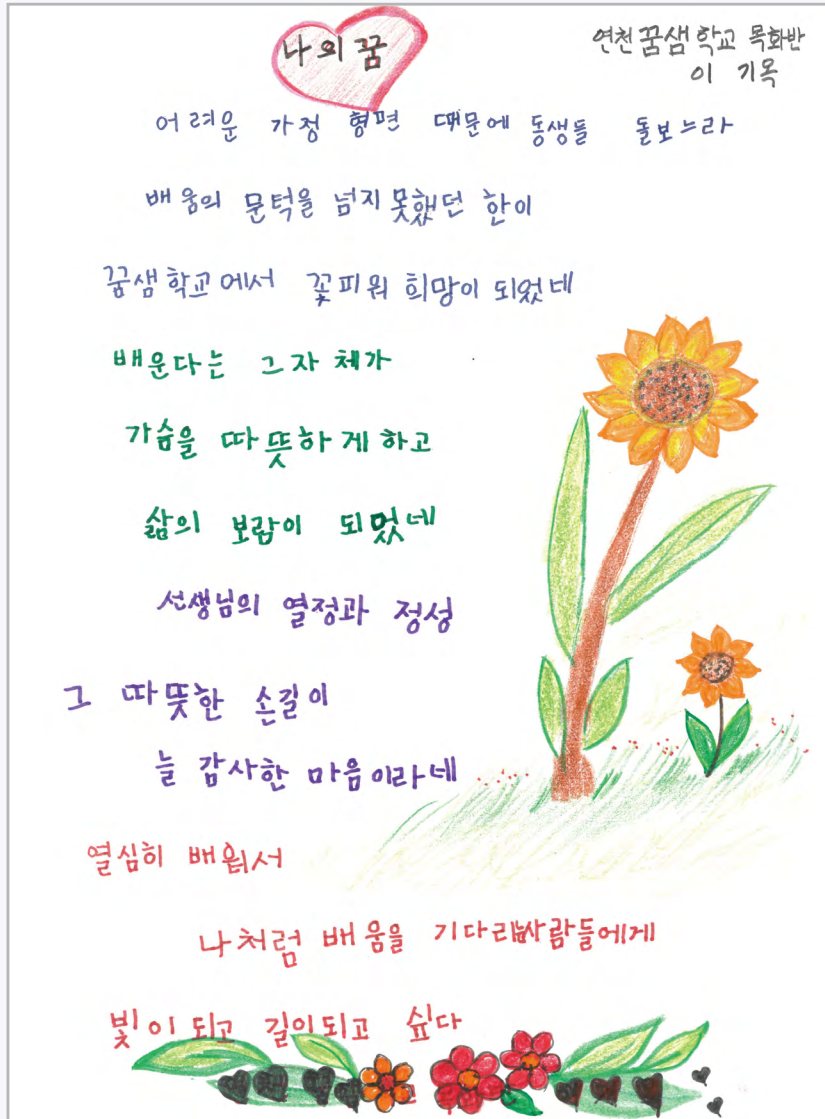 나의 꿈
연천 꿈샘 학교 목화반
이 기옥
어려운 가정 형편 때문에 동생들 돌보느라
배움의 문턱을 넘지 못했던 한이
꿈샘 학교에서 꽃피워 희망이 되었네
배운다는 그 자체가
가슴을 따뜻하게 하고
삶의 보람이 되었네
선생님의 열정과 정성
그 따뜻한 손길이
늘 감사한 마음이라네
열심히 배워서
나처럼 배움을 기다리는 사람들에게
빛이 되고 길이 되고 싶다